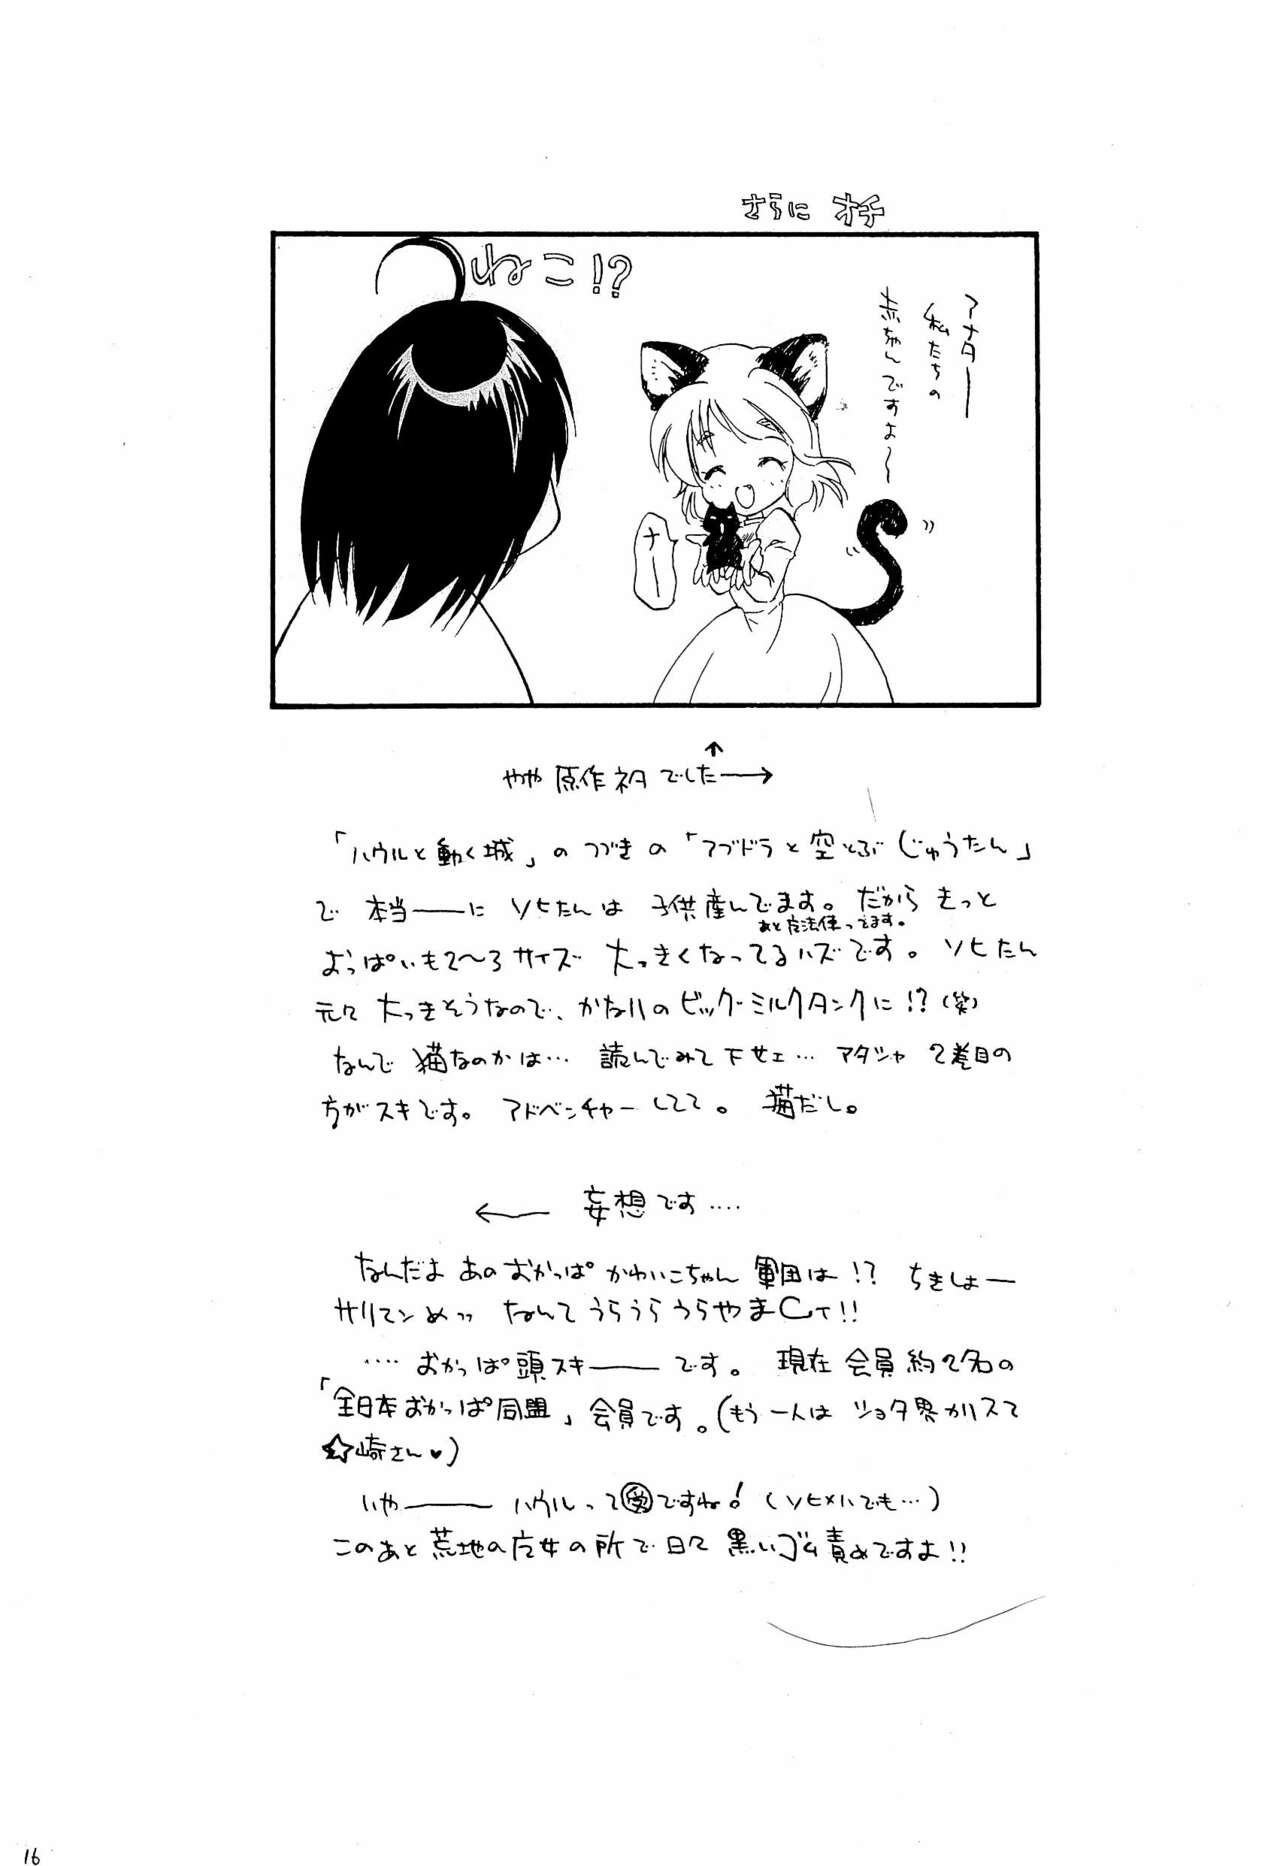 さらに オチ
アナター
私たちの
赤ちゃんですよ〜
ねこ!?
ナー
やや原作ネタでした→
「ハウルと動く城」のつづきの「アブドラと空とぶじゅうたん」
で 本当ーーに ソヒたんは 子供産んでます。だから きっと
あと魔法使ってます。
おっぱいも2〜3サイズ 大っきくなってるハズです。 ソヒたん
元々 大っきそうなので、かなりの ビッグミルクタンクに!?(笑)
なんで 猫なのかは… 読んでみて下せェ… アタシャ 2巻目の
方がスキです。 アドベンチャーしてて。 猫だし。
← 妄想です‥‥
なんだよ あのおかっぱ かわいこちゃん 軍団は!? ちきしょー
サリマンめッ なんて うらうらうらやまCィ!!
‥‥ おかっぱ頭スキーーです。 現在 会員約2名の
「全日本おかっぱ同盟」会員です。(もう一人は ショタ界カリスマ
☆崎さん♥)
いやーーー ハウルって受ですね! (ソヒ×ハでも…)
このあと 荒地の魔女の所で 日々 黒いゴム責めですよ!!
16